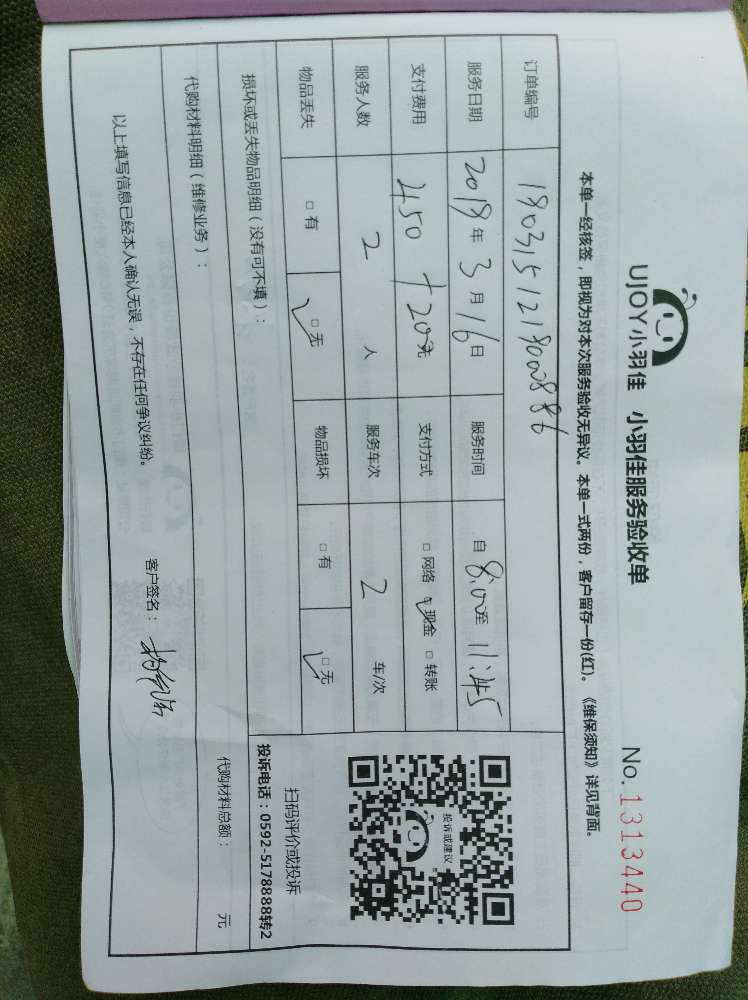 UJOY小羽佳 小羽佳服务验收单
No. 1313440
本单一经核签，即视为对本次服务验收无异议。本单一式两份，客户留存一份(红)。《维保须知》详见背面。
订单编号 18031512190008886
服务日期 2018年3月16日 服务时间 自 8:00 至 11:45
支付费用 450 + 20元 支付方式 □网络 ☑现金 □转账
服务人数 2 人 服务车次 2 车/次
物品丢失 □有 ☑无 物品损坏 □有 ☑无
投诉或建议
扫码评价或投诉
投诉电话：0592-5178888转2
损坏或丢失物品明细（没有可不填）：
代购材料明细（维修业务）： 代购材料总额： 元
以上填写信息已经本人确认无误，不存在任何争议纠纷。 客户签名：